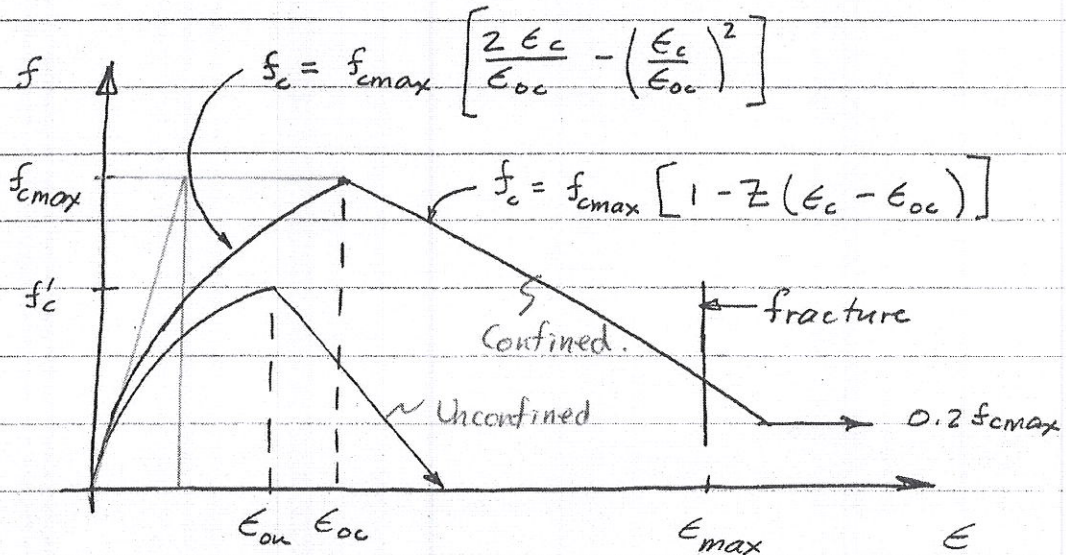 f_c = f_cmax [ 2 ϵ_c / ϵ_oc - ( ϵ_c / ϵ_oc )^2 ]
f
f_cmax
f_c = f_cmax [ 1 - Z ( ϵ_c - ϵ_oc ) ]
f'_c
fracture
Confined.
Unconfined
0.2 f_cmax
ϵ_ou ϵ_oc ϵ_max ϵ